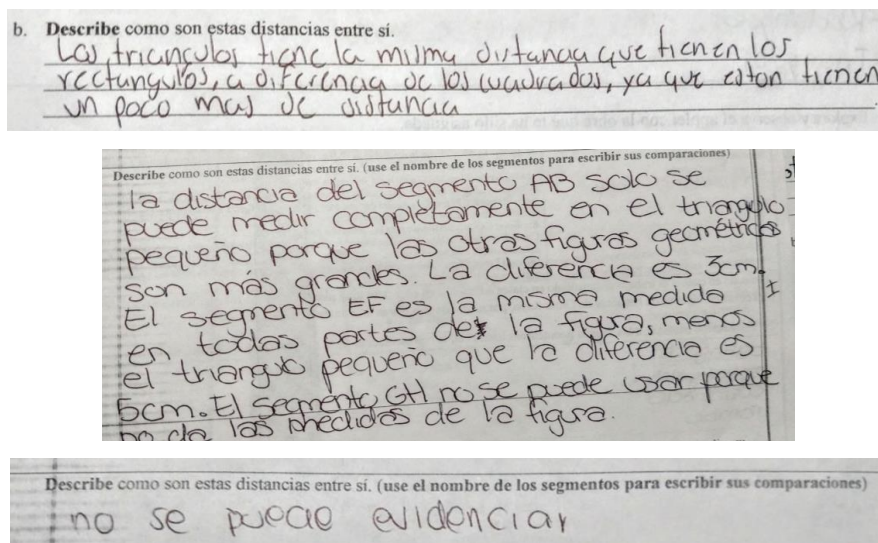 b. Describe como son estas distancias entre sí.
Los triangulos tiene la misma distancia que tienen los
rectangulos, a diferencia de los cuadrados, ya que eston tienen
un poco mas de distancia
Describe como son estas distancias entre sí. (use el nombre de los segmentos para escribir sus comparaciones)
la distancia del segmento AB solo se
puede medir completamente en el triangulo
pequeño porque las otras figuras geométricas
son más grandes. La diferencia es 3cm.
El segmento EF es la misma medida
en todas partes de la figura, menos
el triangulo pequeño que la diferencia es
5cm. El segmento GH no se puede usar porque
no da las medidas de la figura.
Describe como son estas distancias entre sí. (use el nombre de los segmentos para escribir sus comparaciones)
no se puede evidenciar